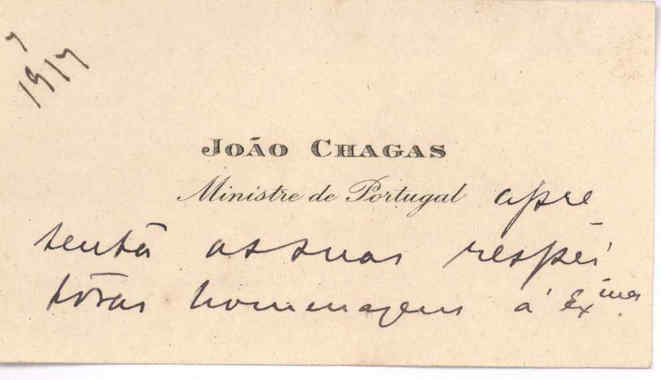 1917
JOÃO CHAGAS
Ministre de Portugal apre
senta as suas respei
tosas homenagens á Exmas.